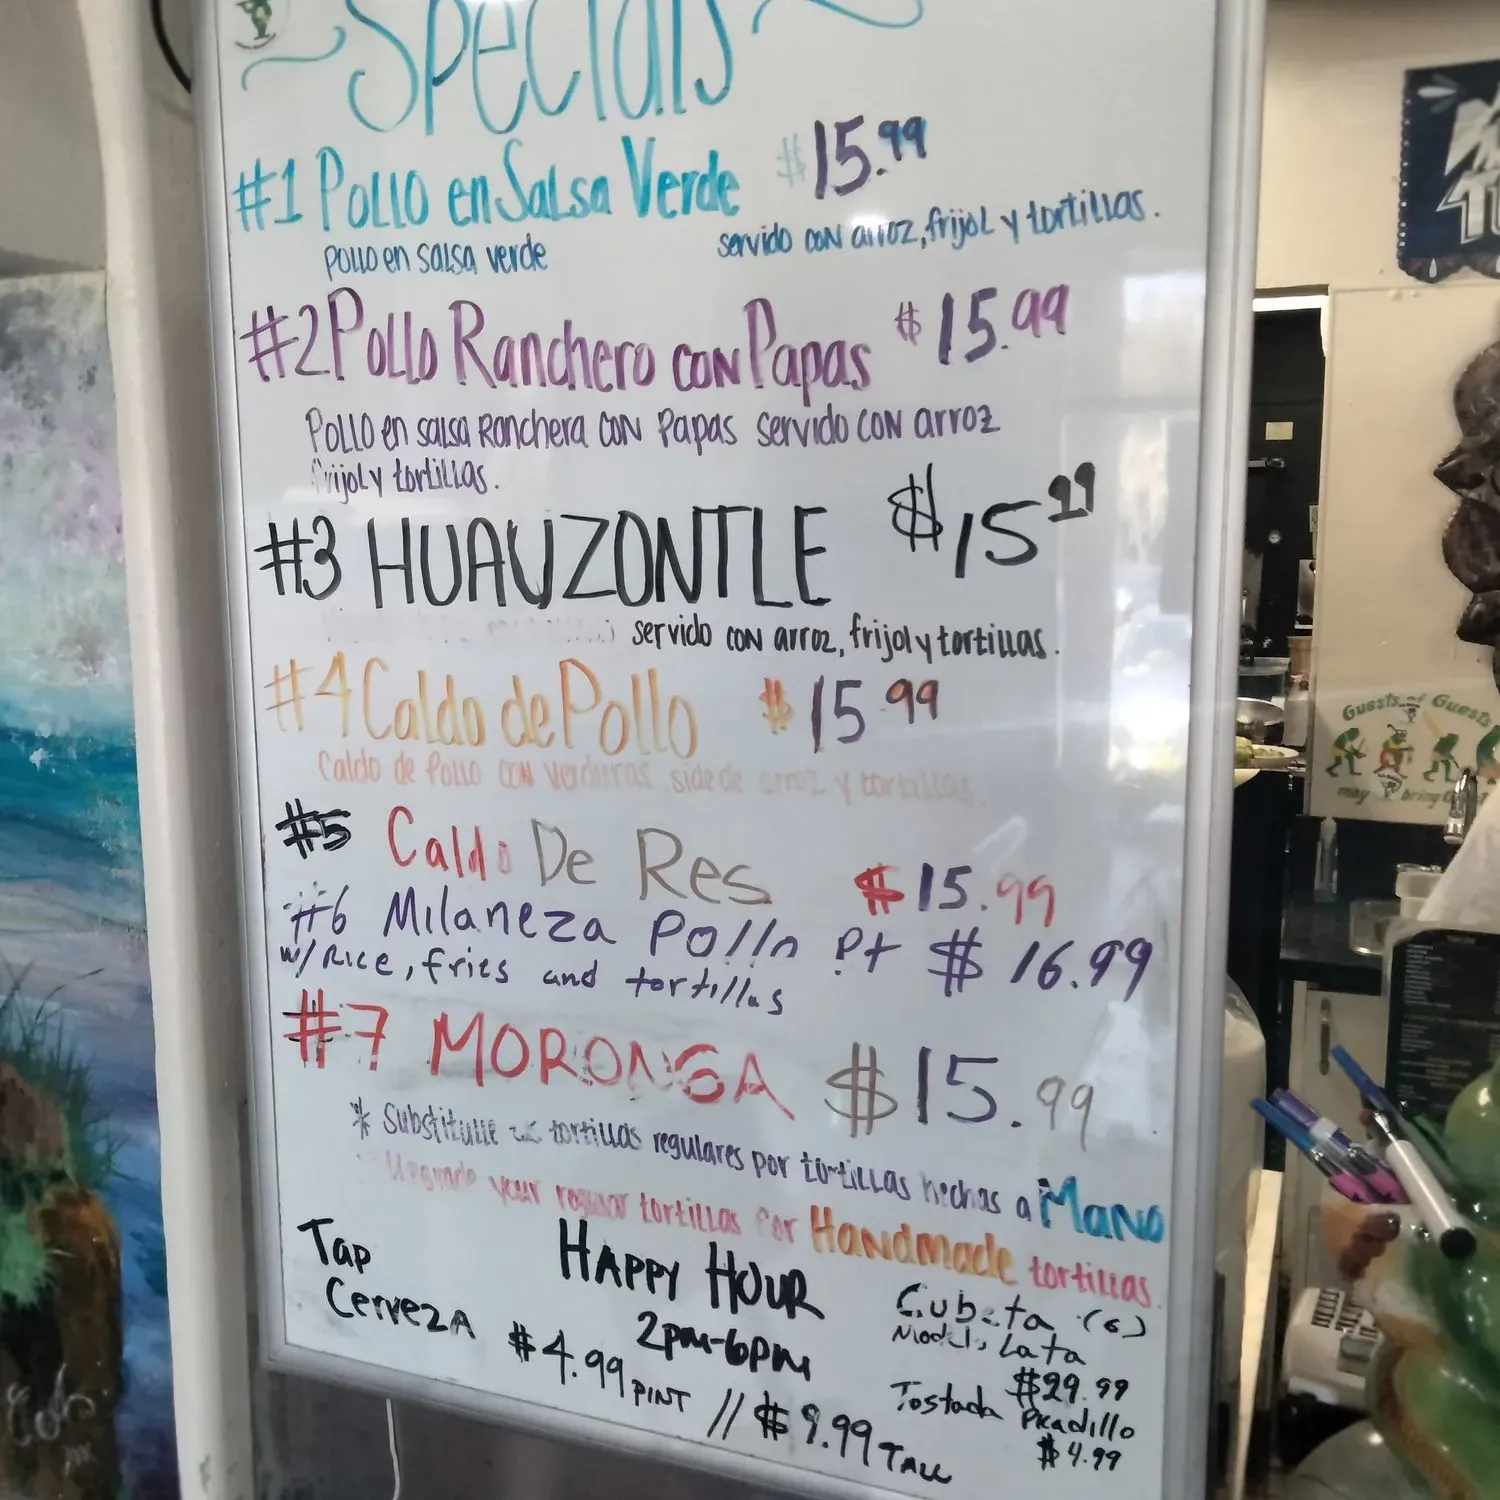 Specials
#1 Pollo en Salsa Verde $15.99
pollo en salsa verde servido con arroz, frijol y tortillas.
#2 Pollo Ranchero con Papas $15.99
Pollo en salsa Ranchera con Papas servido con arroz
frijol y tortillas.
#3 HUAUZONTLE $15.99
servido con arroz, frijol y tortillas.
#4 Caldo de Pollo $15.99
Caldo de Pollo con verduras side de arroz y tortillas.
#5 Caldo De Res $15.99
#6 Milaneza Pollo Pt $16.99
w/ Rice, fries and tortillas
#7 MORONGA $15.99
* Substitulle tortillas regulares por tortillas hechas a Mano
Upgrade your regular tortillas for Handmade tortillas.
Tap
Cerveza
$4.99 PINT // $9.99 TALL
HAPPY HOUR
2pm-6pm
Cubeta (6)
Modelo Lata
$29.99
Tostada Picadillo
$4.99
Guests of Guests
may bring